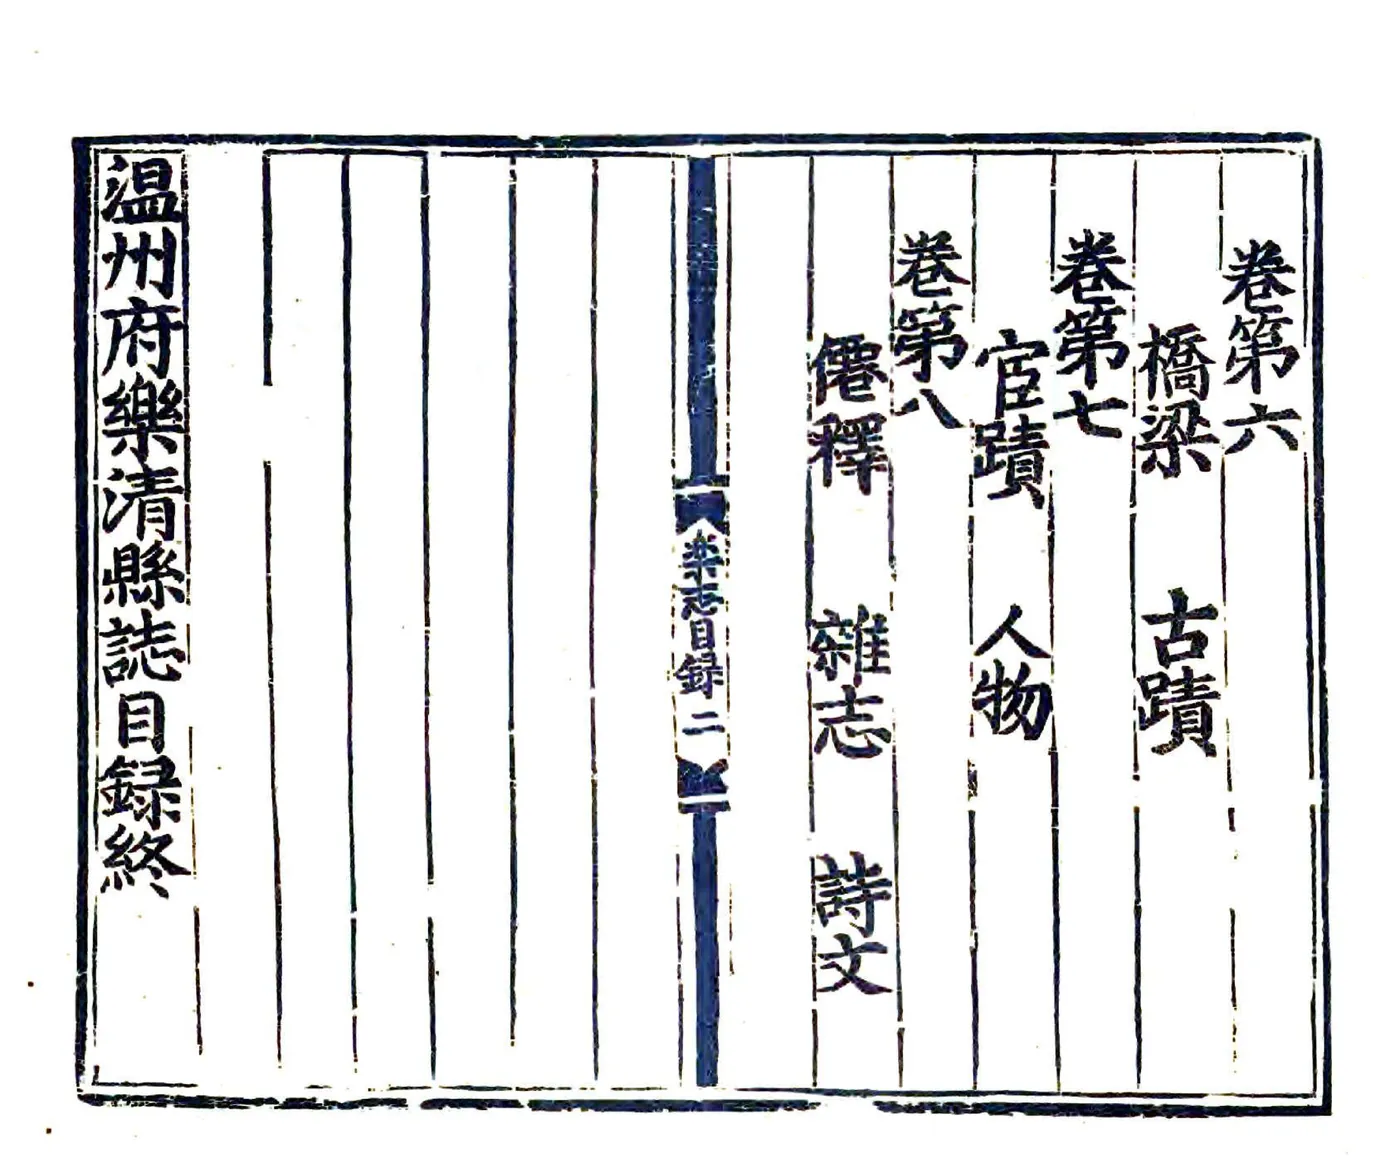 卷第六
橋梁 古蹟
卷第七
宦蹟 人物
卷第八
僊釋 雜志 詩文
楽志目録 二
温州府樂清縣誌目録終